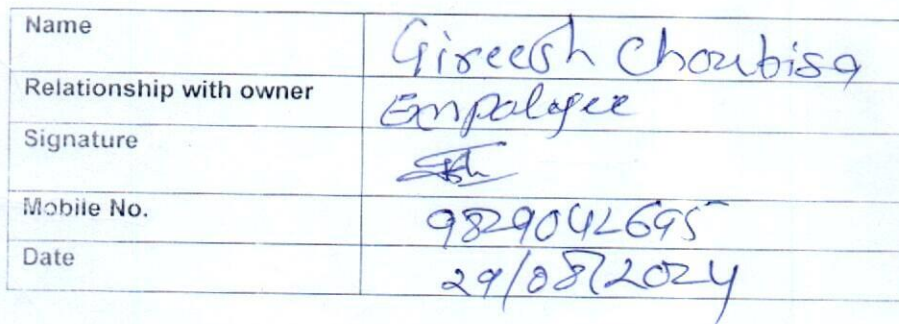 Name Gireesh Choubisa
Relationship with owner Empalyee
Signature
Mobile No. 9829042695
Date 29/08/2024